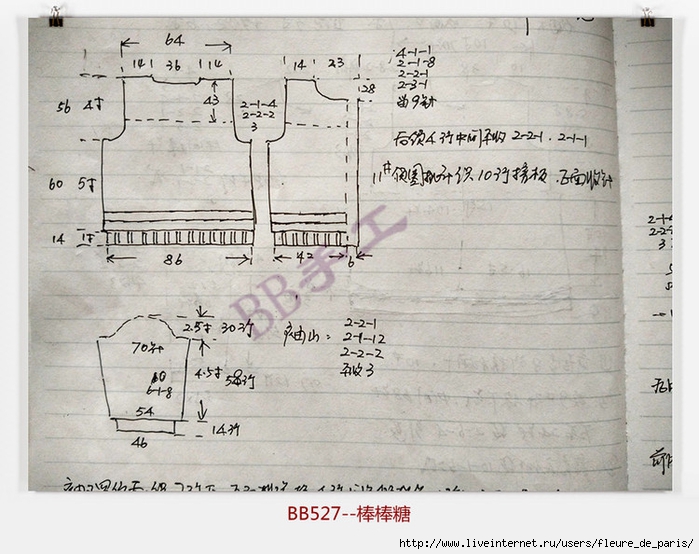 64
14 36 14
14 23
56 4寸
43
28
60 5寸
14 1寸
2-1-4
2-2-2
3
86
42 6
4-1-1
2-1-8
2-2-1
2-3-1
曲9针
后领4行中间平收 2-2-1 . 2-1-1
11#领圈挑针织10行搭板.正面收针
BB手工
2.5寸 30行
70针
4.5寸 58行
6-1-8
54
46
14行
袖山:
2-2-1
2-1-12
2-2-2
平收3
2-1-
2-2-
3
BB527--棒棒糖
http://www.liveinternet.ru/users/fleure_de_paris/